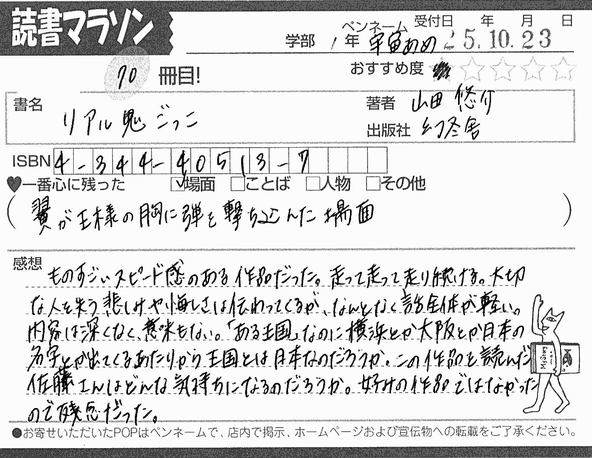 読書マラソン
学部 1年 ペンネーム 宇宙あめ 受付日 年 月 日
'5.10.23
70 冊目!
おすすめ度 ★☆☆☆☆
書名 リアル鬼ごっこ
著者 山田 悠介
出版社 幻冬舎
ISBN 4-344-40513-7
♥一番心に残った ☑場面 □ことば □人物 □その他
(翼が王様の胸に弾を撃ち込んだ場面)
感想
ものすごいスピード感のある作品だった。走って走って走り続ける。大切
な人を失う悲しみや悔しさは伝わってくるが、なんとなく話全体が軽い。
内容は深くなく、意味もない。「ある王国」なのに横浜とか大阪とか日本の
名字とか出てくるあたりから王国とは日本なのだろうか。この作品を読んだ
佐藤さんはどんな気持ちになるのだろうか。好みの作品ではなかった
ので残念だった。
●お寄せいただいたPOPはペンネームで、店内で掲示、ホームページおよび宣伝物への転載をご了承ください。